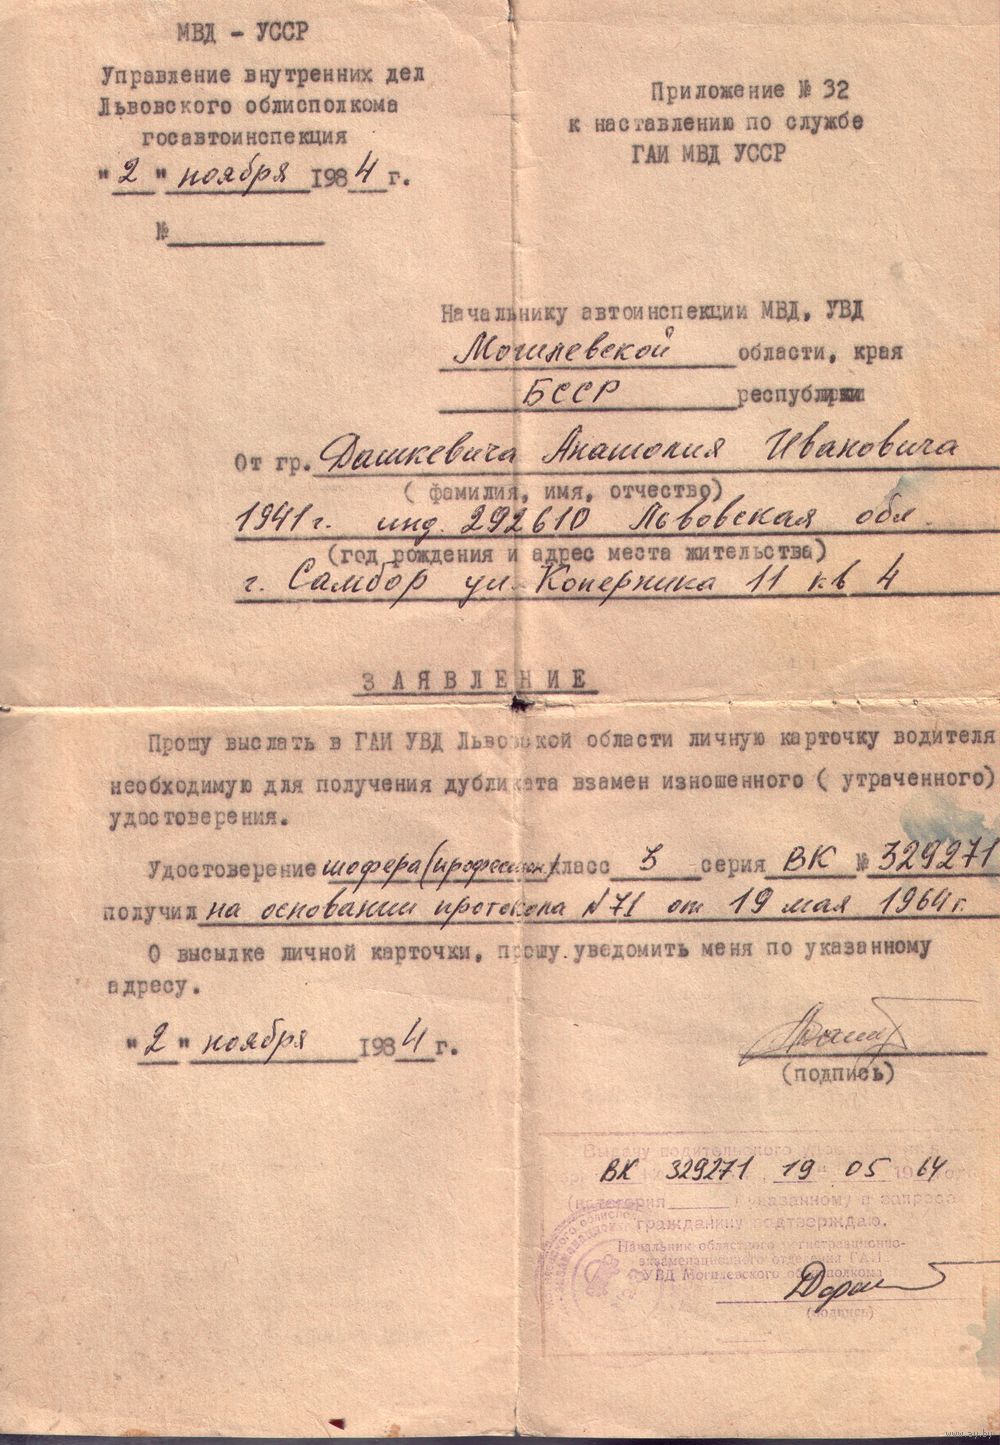 МВД - УССР
Управление внутренних дел
Львовского облисполкома
госавтоинспекция
"2" ноября 1984 г.
№
Приложение № 32
к наставлению по службе
ГАИ МВД УССР
Начальнику автоинспекции МВД, УВД
Могилевской области, края
БССР республики
От гр. Дашкевича Анатолия Ивановича
( фамилия, имя, отчество)
1941 г. инд. 292610 Львовская обл.
(год рождения и адрес места жительства)
г. Самбор ул. Коперника 11 кв 4
ЗАЯВЛЕНИЕ
Прошу выслать в ГАИ УВД Львовской области личную карточку водителя
необходимую для получения дубликата взамен изношенного ( утраченного)
удостоверения.
Удостоверение шофера (професион) класс 3 серия ВК № 329271
получил на основании протокола N 71 от 19 мая 1964 г.
О высылке личной карточки, прошу уведомить меня по указанному
адресу.
"2" ноября 1984 г.
(подпись)
Выдачу водительского
ВК 329271 19 05 1964
(категория указанному в запросе
гражданину подтверждаю.
Начальник областного регистрационно-
экзаменационного отделения ГАИ
УВД Могилевского облисполкома
(подпись)
www.ay.by